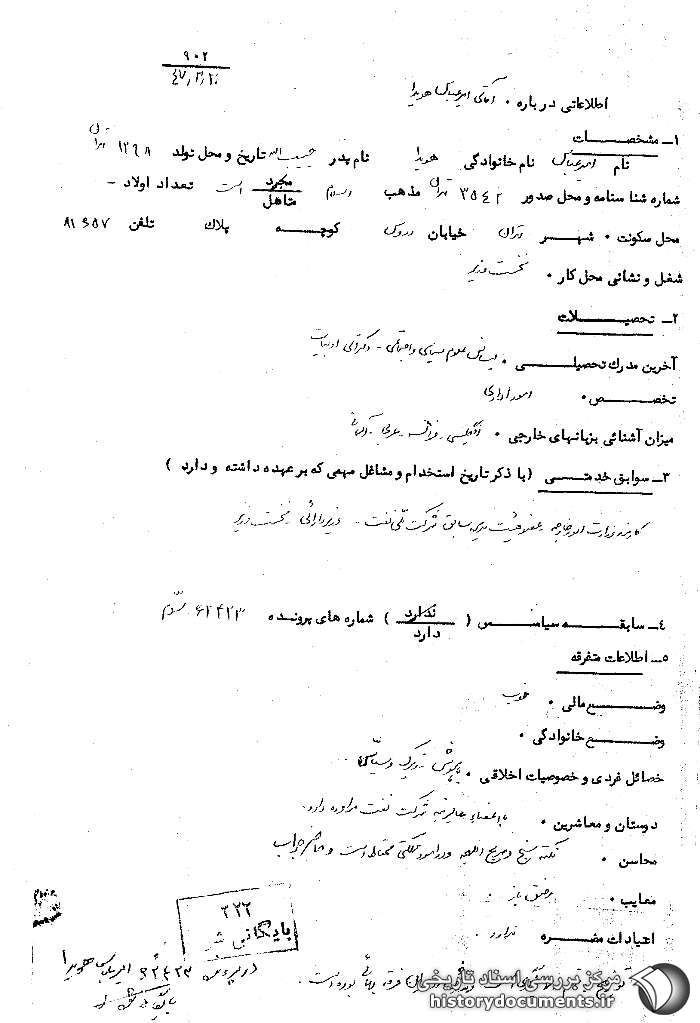 ۹۰۲
۴۷٫۳٫۲۰
اطلاعاتی درباره ۰ آقای امیرعباس هویدا
۱ـ مشخصـــات
نام امیرعباس نام خانوادگی هویدا نام پدر حبیب‌الله تاریخ و محل تولد ۱۲۹۸ تهران
شماره شناسنامه و محل صدور ۳۵۴۲ تهران مذهب اسلام مجرد متاهل است تعداد اولاد -
محل سکونت ۰ شهـر تهران خیابان دروس کوچـــه پلاک تلفن ۸۱۶۵۷
شغل و نشانی محل کار ۰ نخست وزیر
۲ـ تحصیـــلات
آخرین مدرک تحصیلـــی ۰ لیسانس علوم سیاسی و اجتماعی - دکترای ادبیات
تخصـــص ۰ امور اداری
میزان آشنائی بزبانهای خارجی ۰ انگلیسی - فرانسه - عربی - آلمانی
۳ـ سوابق خدمتـــی (با ذکر تاریخ استخدام و مشاغل مهمی که بر عهده داشته و دارد )
کارمند وزارت امور خارجه عضو هیئت مدیره سابق شرکت ملی نفت - وزیر دارائی - نخست وزیر
۴ـ سابقـــه سیاســـی ( ندارد دارد ) شماره های پرونـده ۶۲۴۲۳
۵ـ اطلاعات متفرقه
وضـــع مالی ۰ خوب
وضـــع خانوادگی ۰
خصائل فردی و خصوصیات اخلاقی ۰ باهوش
دوستان و معاشرین ۰ با اعضاء عالیرتبه شرکت نفت مراوده دارد.
محاسن ۰ نکته سنج و صریح اللهجه و در امور مملکتی محتاط است و حاضر جواب
معایب ۰
اعتیادات مضـــره ۰ ندارد
فرقه بهائی بوده است.
۳۲۲
بایگانی شد
در پرونده ۶۲۴۲۳ امیرعباس هویدا
بایگانی شود
مرکز بررسی اسناد تاریخی
historydocuments.ir